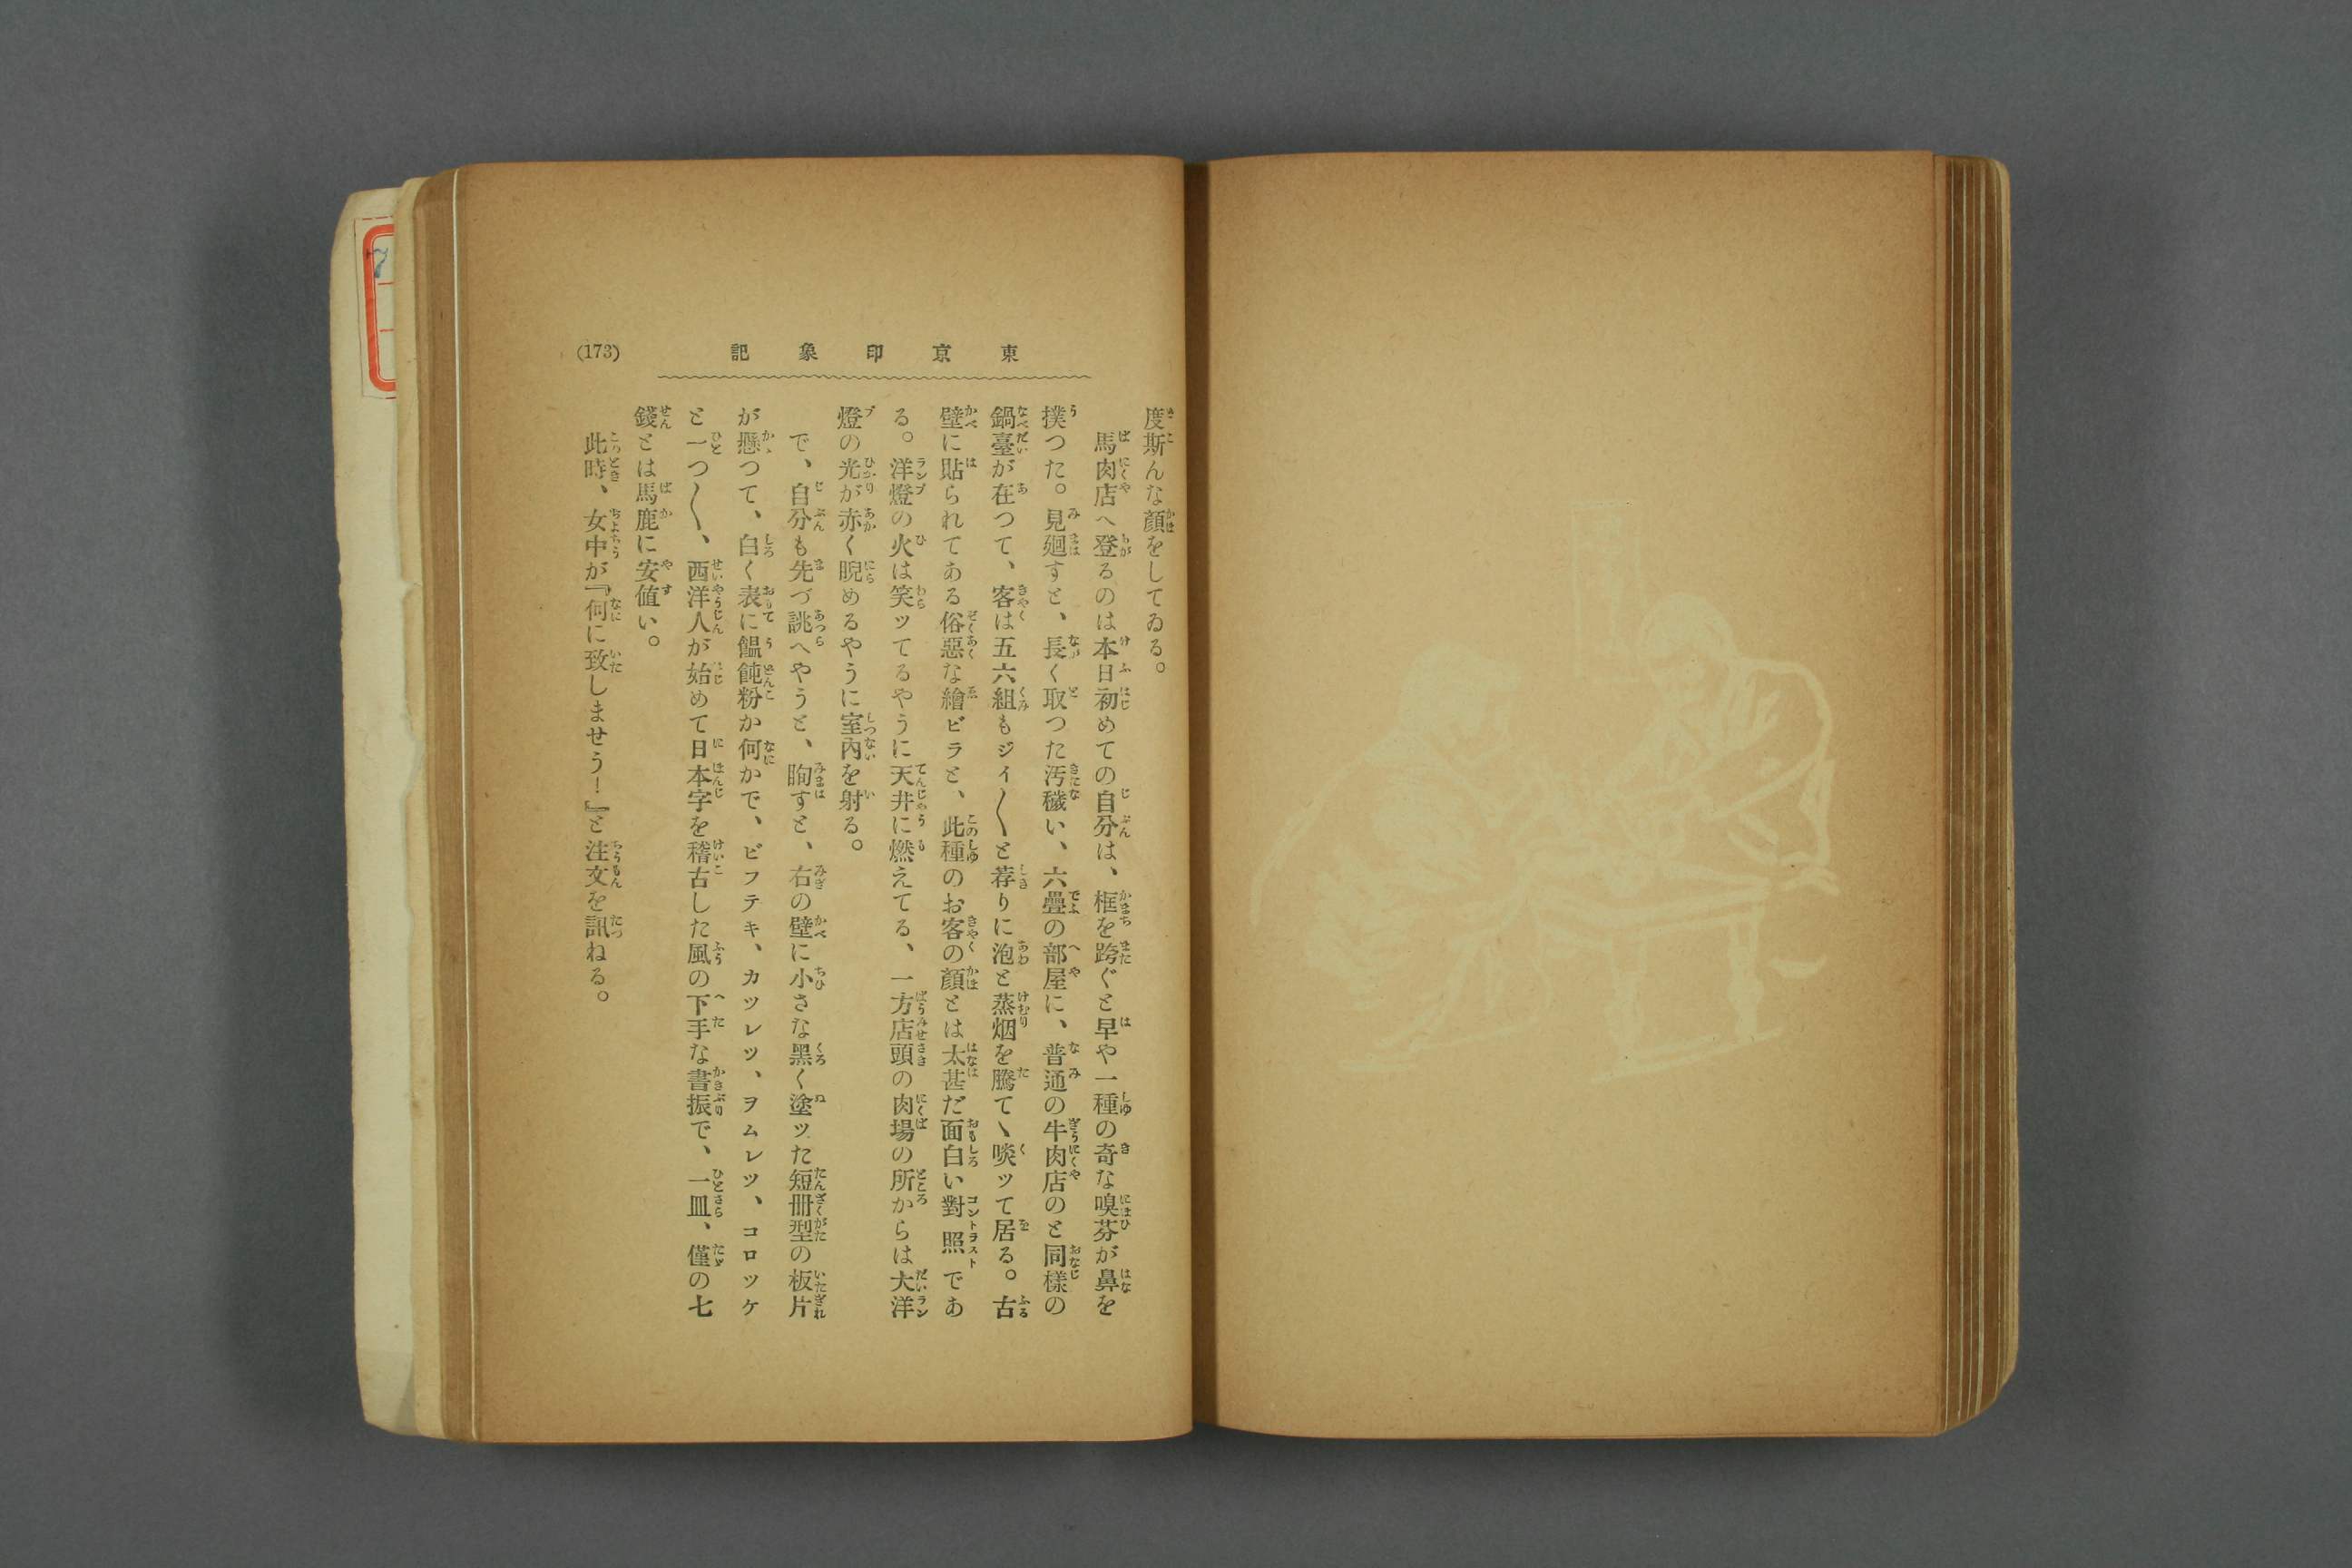 東京印象記
(173)
度斯んな顔をしてゐる。
馬肉店へ登るのは本日初めての自分は、框を跨ぐと早や一種の奇な嗅芬が鼻を
撲つた。見廻すと、長く取つた汚穢い、六疊の部屋に、普通の牛肉店のと同樣の
鍋臺が在つて、客は五六組もジイ〱と荐りに泡と蒸烟を騰てヽ啖ッて居る。古
壁に貼られてある俗惡な繪ビラと、此種のお客の顔とは太甚だ面白い對照であ
る。洋燈の火は笑ッてるやうに天井に燃えてる、一方店頭の肉場の所からは大洋
燈の光が赤く睨めるやうに室內を射る。
で、自分も先づ誂へやうと、眴すと、右の壁に小さな黑く塗ッた短冊型の板片
が懸つて、白く表に饂飩粉か何かで、ビフテキ、カツレツ、ヲムレツ、コロツケ
と一つ〱、西洋人が始めて日本字を稽古した風の下手な書振で、一皿、僅の七
錢とは馬鹿に安値い。
此時、女中が『何に致しませう！』と注文を訊ねる。